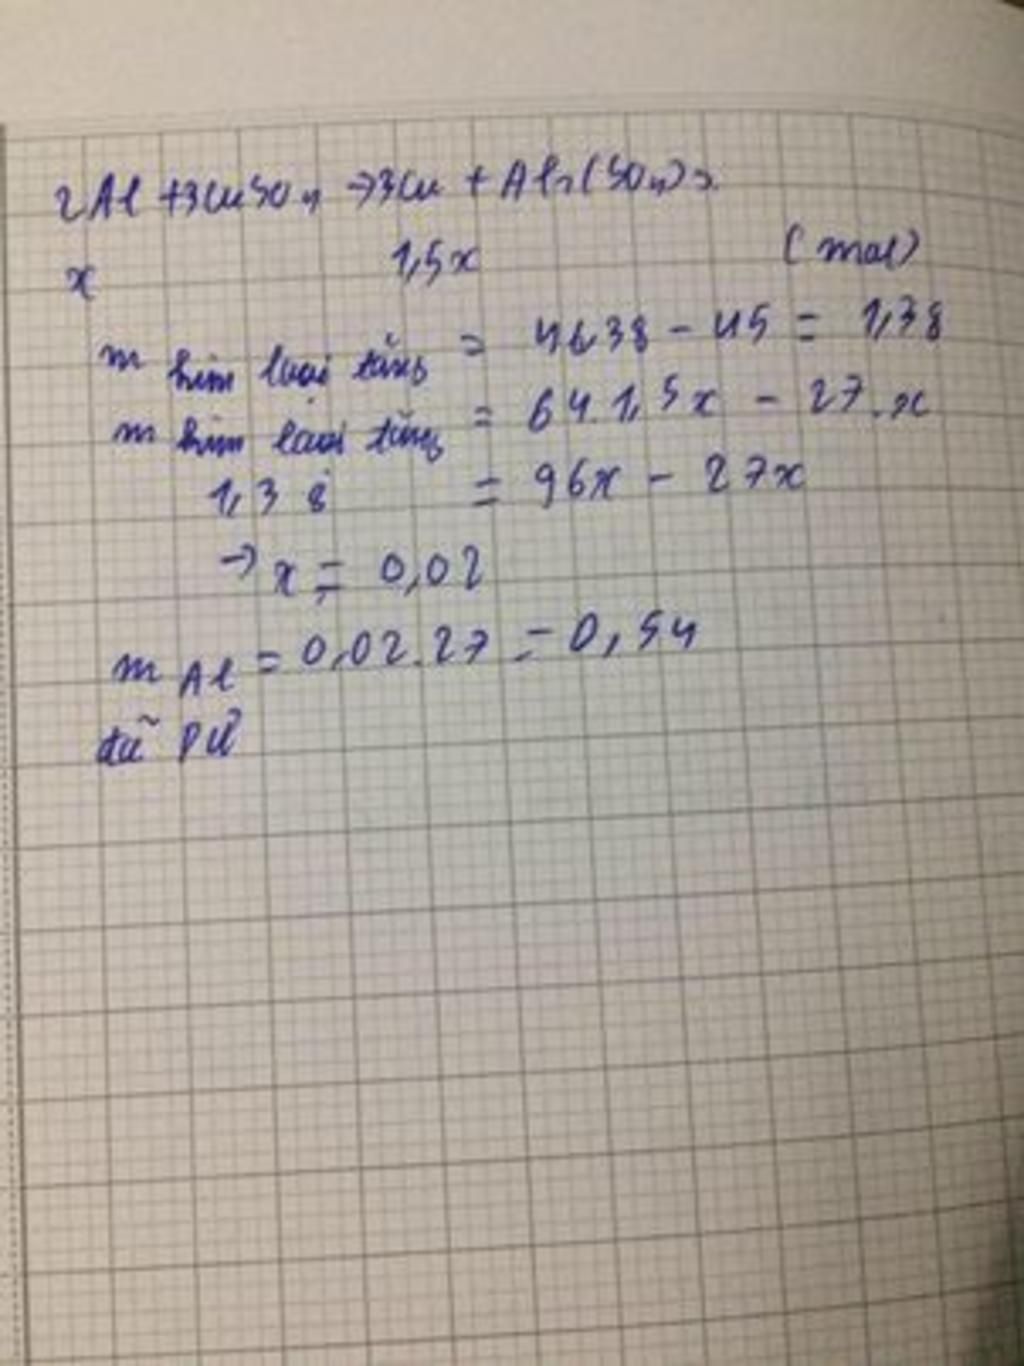 2Al + 3CuSO4 → 3Cu + Al2(SO4)3.
x 1,5x (mol)
m kim loại tăng = 46,38 - 45 = 1,38
m kim loại tăng = 64.1,5x - 27.x
1,38 = 96x - 27x
→ x = 0,02
m Al = 0,02.27 = 0,54
đã PƯ